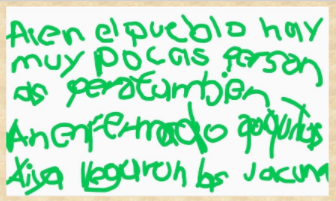 Aien el pueblo hay
muy pocas person
as peratambien
An enfermado
Aiya llegaron las vacun